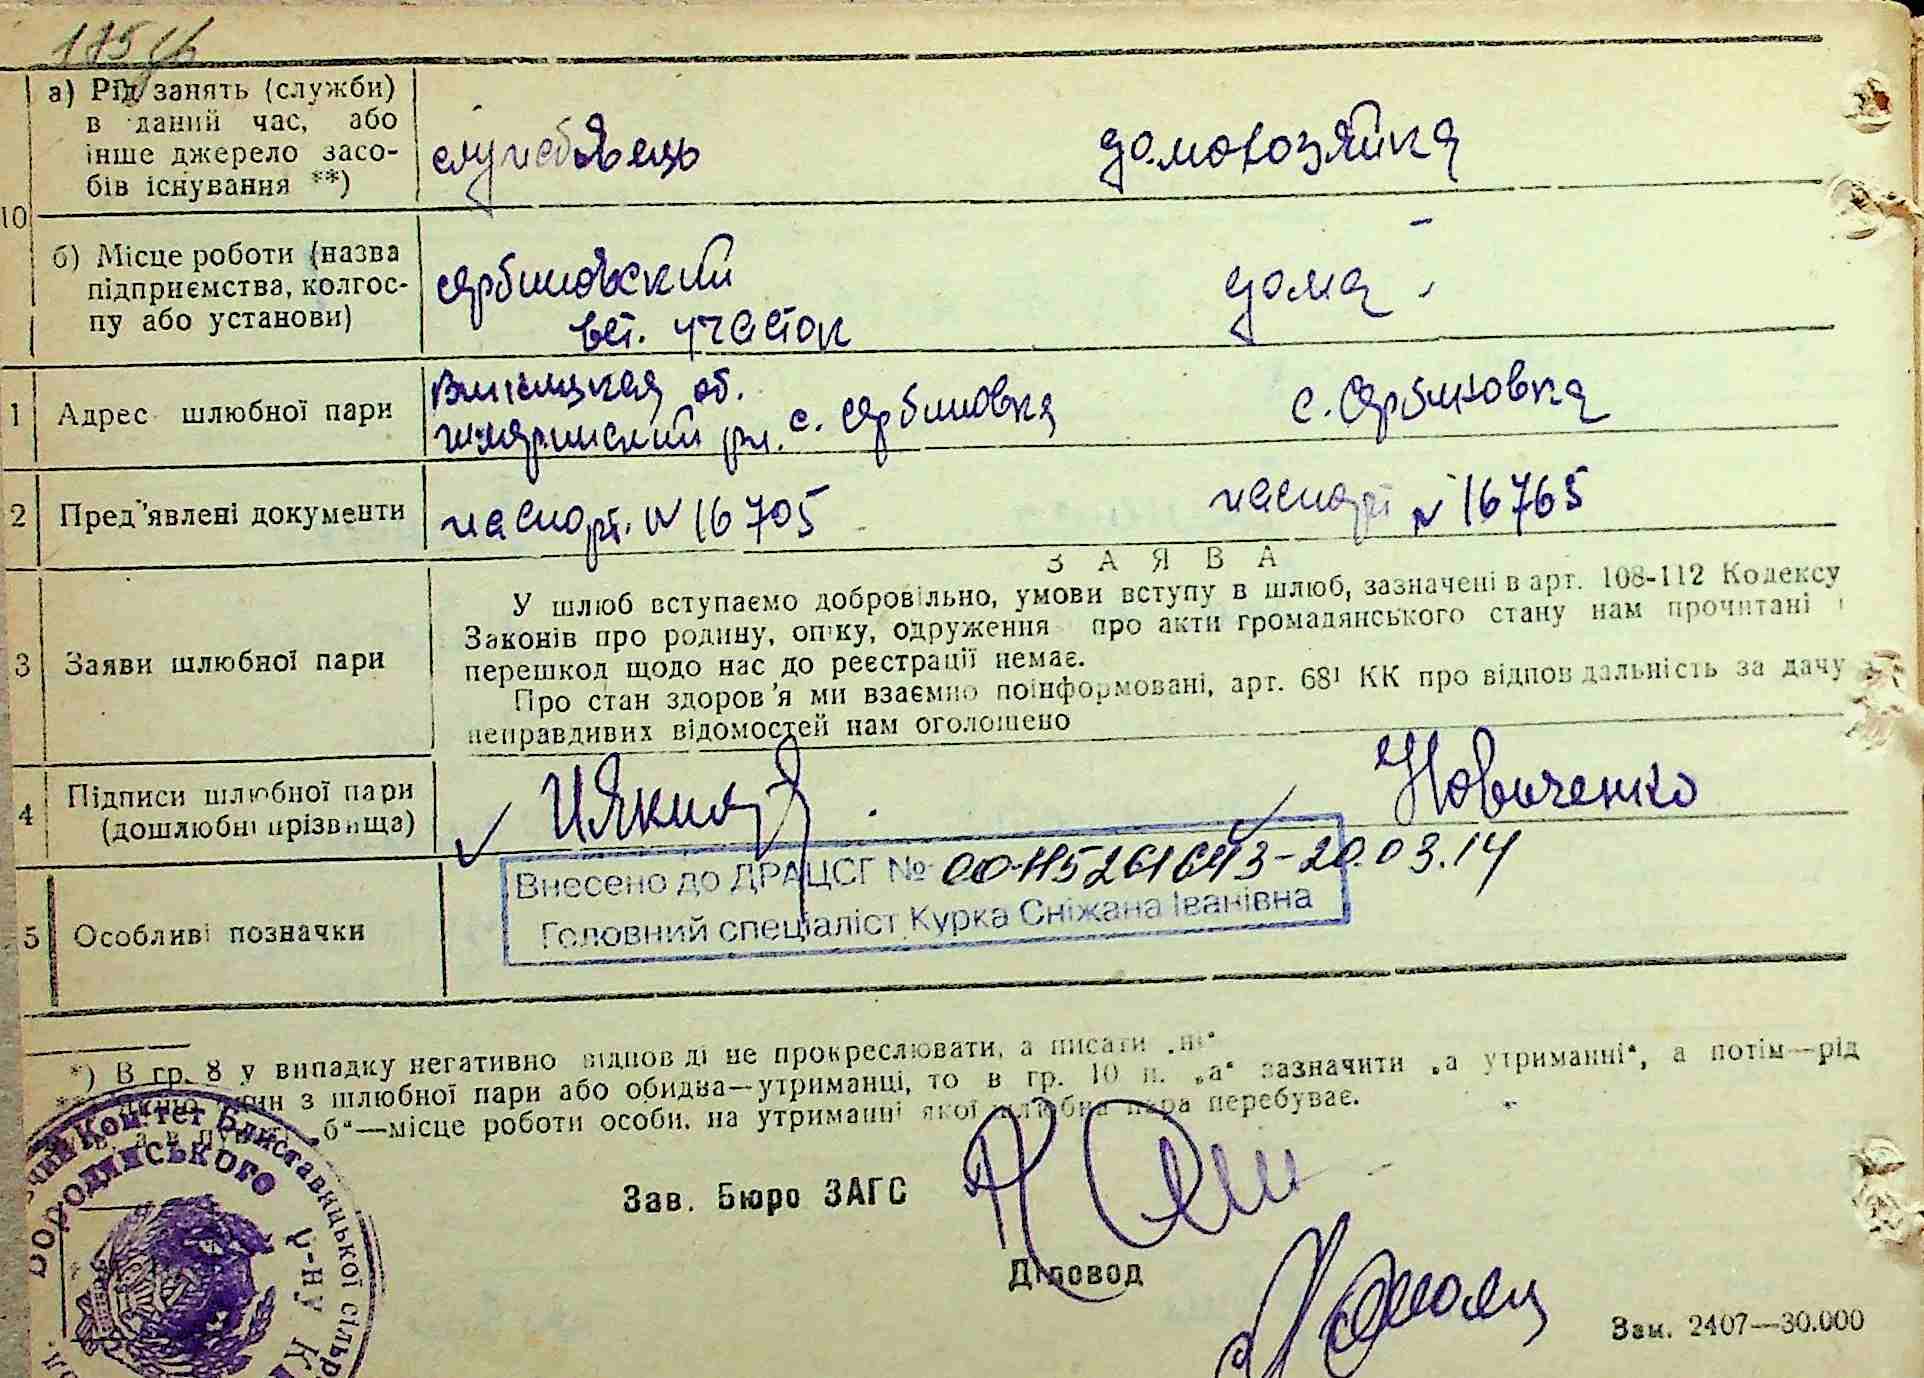 а) Рід занять (служби)
в даний час, або
інше джерело засо-
бів існування **)
службовець
домохозяйка
10
б) Місце роботи (назва
підприємства, колгос-
пу або установи)
сербиновский
вет. участок
дома
1 Адрес шлюбної пари
Винницкая об.
жмеринский рн. с. Сербиновка
с. Сербиновка
2 Пред'явлені документи
паспорт. N 16705
паспорт N 16765
ЗАЯВА
3 Заяви шлюбної пари
У шлюб вступаємо добровільно, умови вступу в шлюб, зазначені в арт. 108-112 Кодексу
Законів про родину, опіку, одруження про акти громадянського стану нам прочитані і
перешкод щодо нас до реєстрації немає.
Про стан здоров'я ми взаємно поінформовані, арт. 68¹ КК про відповідальність за дачу
неправдивих відомостей нам оголошено
4 Підписи шлюбної пари
(дошлюбні прізвища)
Новиченко
5 Особливі позначки
Внесено до ДРАЦСГ № 00115261643-20.03.14
Головний спеціаліст Курка Сніжана Іванівна
*) В гр. 8 у випадку негативно відповіді не прокреслювати, а писати „ні“
з шлюбної пари або обидва—утриманці, то в гр. 10 п. „а“ зазначити „а утриманні“, а потім—рід
б“—місце роботи особи, на утриманні якої шлюбна пара перебуває.
Комітет Блиставицької сільр
Бородянського
р-ну
Зав. Бюро ЗАГС
Діловод
Зам. 2407—30.000